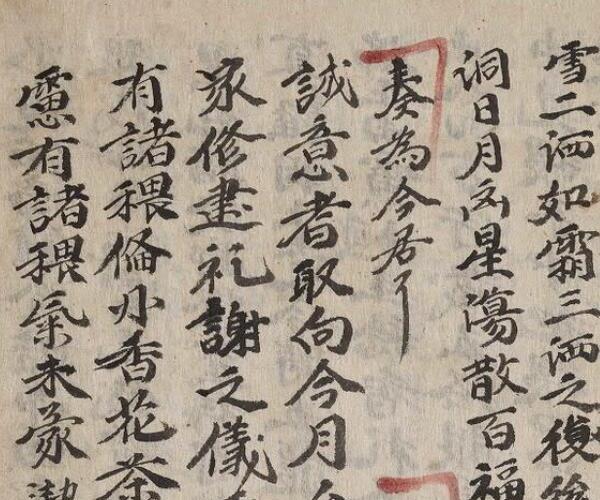 雪二洒如霜三洒之後
洞日月凶星蕩散百福
奏為今君了
誠意者取向今月
家修建礼謝之儀
有諸猥偹小香花茶
慮有諸猥氣未蒙